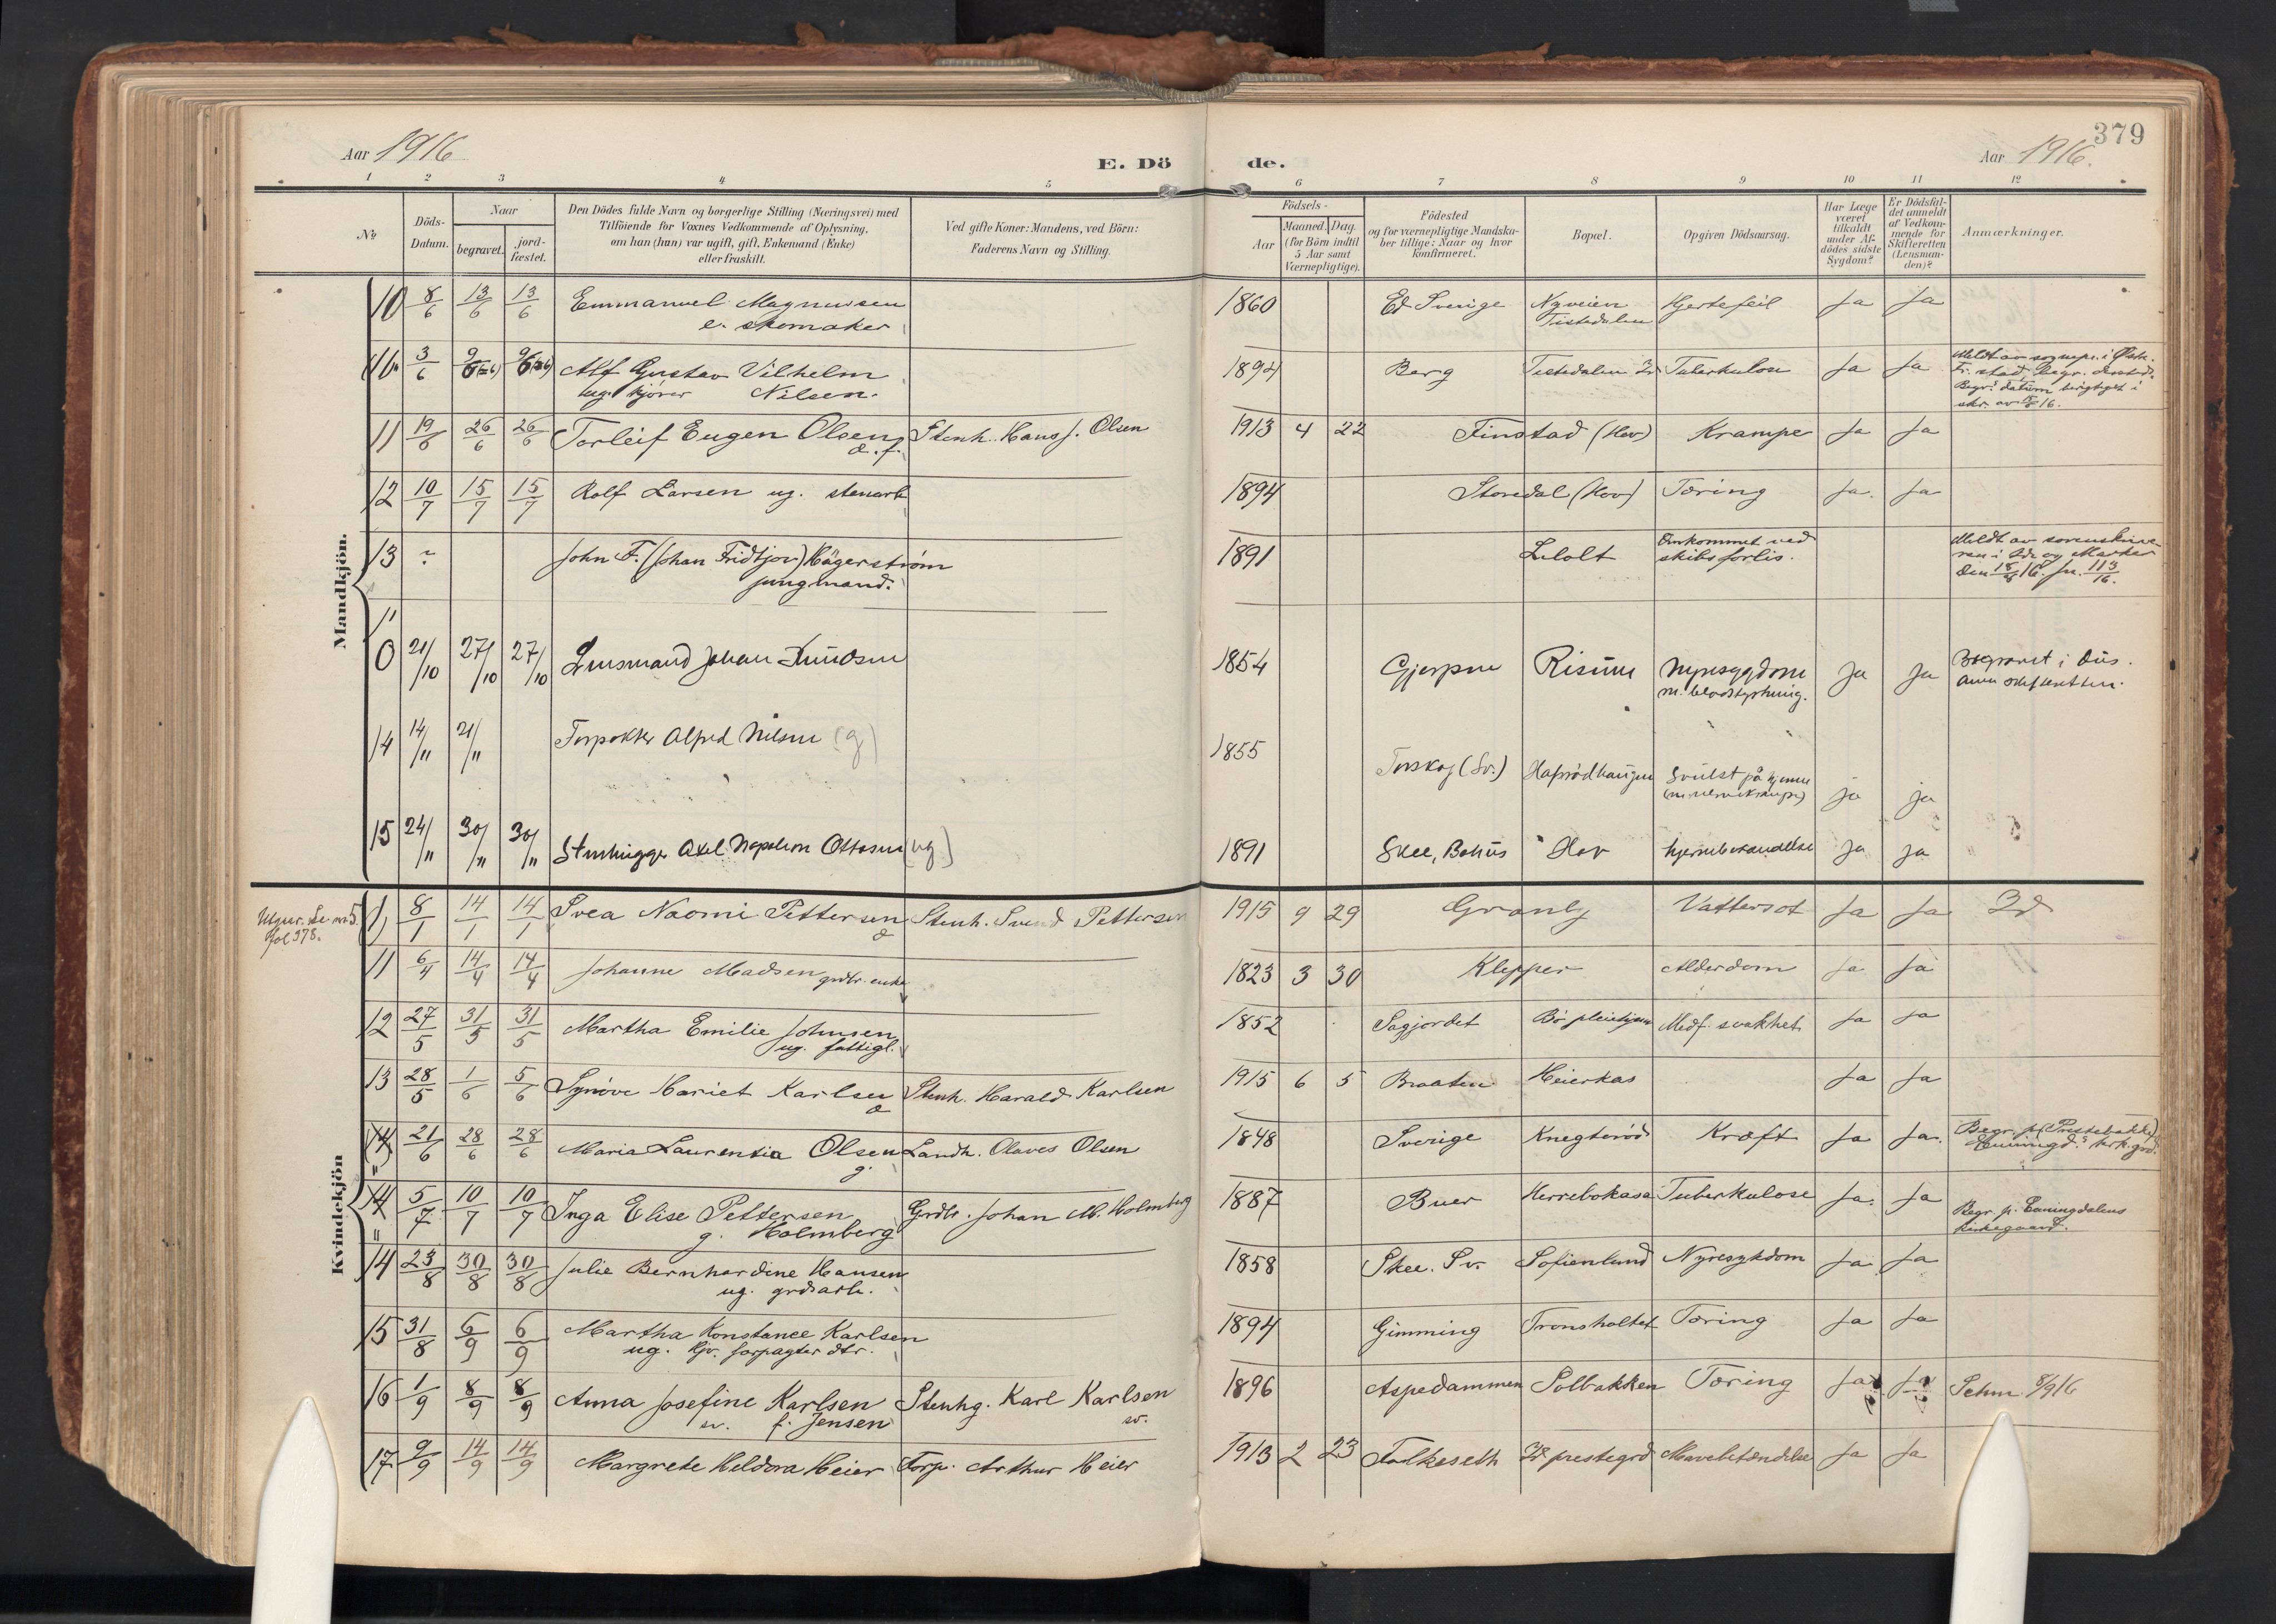 Aar 1916
E. Dö
de.
Aar 1916.
379
1 2 3 4 5 6 7 8 9 10 11 12
No
Döds-
Datum.
Naar
begravet.
jord-
fæstet.
Den Dödes fulde Navn og borgerlige Stilling (Næringsvei) med
Tilföiende for Voxnes Vedkommende af Oplysning,
om han (hun) var ugift, gift, Enkemand (Enke)
eller fraskilt.
Ved gifte Koner: Mandens, ved Börn:
Faderens Navn og Stilling.
Födsels-
Aar
Maaned. Dag.
(for Börn indtil
5 Aar samt
Værnepligtige).
Födested
og for værnepligtige Mandska-
ber tillige: Naar og hvor
konfirmeret.
Bopæl.
Opgiven Dödsaarsag.
Har Læge
været
tilkaldt
under Af-
dödes sidste
Sygdom?
Er Dödsfal-
det anmeldt
af Vedkom-
mende for
Skifteretten
(Lensman-
den)?
Anmærkninger.
Mandkjön.
10 8/6 13/6 13/6 Emmanuel Magnussen 1860 Ed Sverige Nyveien Hjertefeil Ja Ja
e. skomaker Tistedalen
3/6 Alf Gustav Vilhelm 1894 Berg Tistedalen Tuberkulose Ja Ja
ug. kjører Nilsen.
Begr. datum
11 19/6 26/6 26/6 Torleif Eugen Olsen Stenh. Hans J. Olsen 1913 4 22 Finstad (Hov) Krampe Ja Ja
12 10/7 15/7 15/7 Rolf Larsen ug. stenarb 1894 Storedal (Hov) Tæring Ja. Ja
13 ? John F. (Johan Fridtjov) Hägerström 1891 Lilolt Omkommet ved
jungmand. skibsforlis.
Meldt av sorenskrive-
ren i Id og Marker
den 18/8 16. jn. 113/16.
0 21/10 27/10 27/10 Lensmand Johan Knudsen 1854 Gjerpen Risum Nyresygdom Ja Ja Begravet i
m. blodstyrtning.
14 14/11 21/11 Forpakter Alfred Nilsen (g) 1855 Torskog (Sv.) Hafsrødhaugen Svulst på hjernen ja ja
15 24/11 30/11 30/11 Stenhugger Axel Napoleon Ottosen (ug) 1891 Skee, Bohus Hov hjernebetændelse Ja ja
Kvindekjön
fol 378.
1) 8/1 14/1 14/1 Svea Naomi Pettersen Stenh. Svend Pettersen 1915 9 29 Granly Vattersot Ja Ja Id
d
11 6/4 14/4 14/4 Johanne Madsen grdbr. enke 1823 3 30 Klepper Alderdom Ja Ja
12 27/5 31/5 31/5 Martha Emilie Johnsen 1852 Sagjordet Bö pleiehjem Medf. svakhet Ja Ja
ug. fattigl.
13 28/5 1/6 5/6 Synöve Hariet Karlsen Stenh. Harald Karlsen 1915 6 5 Braaten Heierkas Ja Ja
d
(14) 21/6 28/6 28/6 Maria Laurentia Olsen Landh. Olaves Olsen 1848 Sverige Knegterød Kræft Ja Ja. Begr. p (Prestebakke)
g.
14 5/7 10/7 10/7 Inga Elise Pettersen Grdbr. Johan M. Holmberg 1887 Buer Herrebokasa Tuberkulose Ja. Ja Begr. p. Enningdalens
g. Holmberg kirkegaard.
14 23/8 30/8 30/8 Julie Bernhardine Hansen 1858 Skee. Sv. Sofienlund Nyresykdom Ja Ja
ug. grdsarb.
15 31/8 6/9 6/9 Martha Konstance Karlsen 1894 Gimming Tronsholtet Tæring Ja Ja
ug. kjv. forpagter dtr.
16 1/9 8/9 8/9 Anna Josefine Karlsen Stenhg. Karl Karlsen 1896 Aspedammen Solbakken Tæring Ja Ja Schm. 8/9 16
sv. f. Jensen sv.
17 9/9 14/9 14/9 Margrete Heldora Heier Forp. Arthur Heier 1913 2 23 Folkeseth Id prestegrd Mavebetændelse Ja Ja